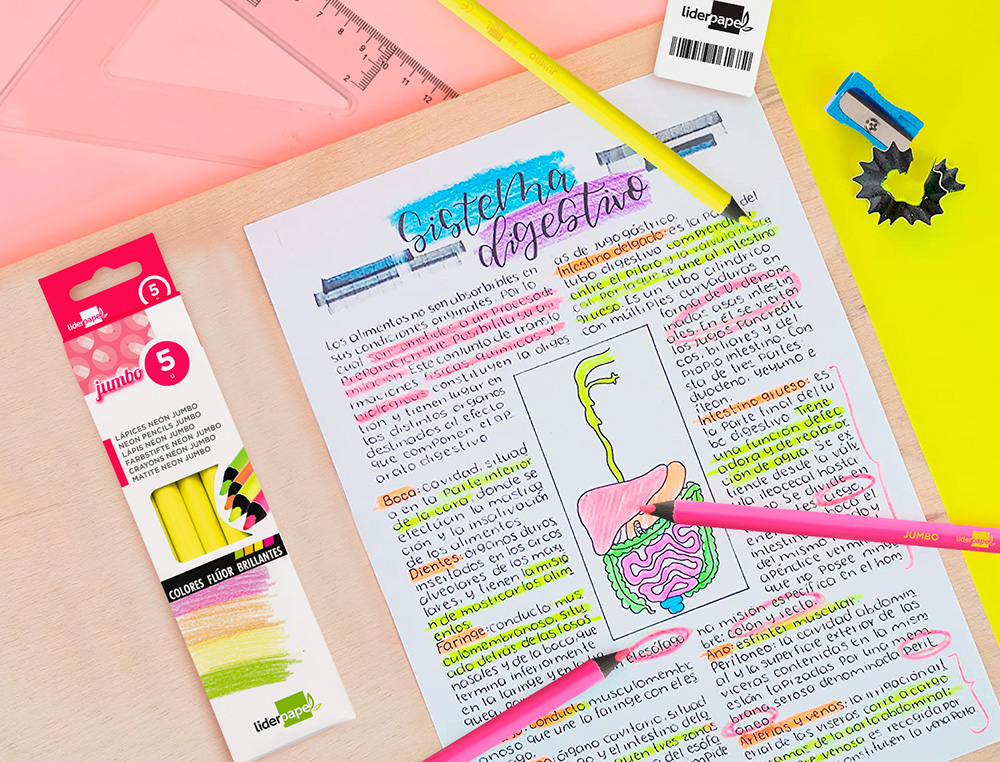 liderpapel
7 8 9 10 11 12
JUMBO
liderpapel
5
jumbo
5
u
LÁPICES NEÓN JUMBO
NEON PENCILS JUMBO
LÁPIS NEON JUMBO
FARBSTIFTE NEON JUMBO
CRAYONS NÉON JUMBO
MATITE NEON JUMBO
COLORES FLÚOR BRILLANTES
liderpapel
sistema
digestivo
Los alimentos no son absorbibles en
sus condiciones originales. Por lo
cual
preparación que posibilita su asi-
milación. Este conjunto de transfor
maciones físicas, químicas y
biológicas constituyen la diges
tión y tienen lugar en
los distintos órganos
destinados al efecto
que componen el ap-
arato digestivo
Boca: cavidad, situad
a en la parte inferior
de la cara, donde se
efectúan la mastica
ción y la insalivación
de los alimentos.
Dientes: órganos duros
insertados en los arcos
alveolares de los maxi
lares, y tienen la misió
n de masticar los alim
entos
Faringe: conducto mus
culomembranoso, situ
ado detrás de las fosas
nasales y de la boca que
termina inferiormente
en la laringe y en el esófago
conducto musculomembr
anoso que une la faringe con el es
órgano cavitario, situad
y el intestino delg
as de jugo gástrico.
Intestino delgado: es la parte del
tubo digestivo comprendida
entre el píloro y la válvula ileoce
cal por la que se une al intestino
grueso. Es un tubo cilíndrico
con múltiples curvaduras en
forma de U, denomi
nadas asas intestin
ales. En él se vierten
los jugos pancreáti
cos, biliares y del
propio intestino. Con
sta de tres partes:
duodeno, yeyuno e
íleon.
Intestino grueso: es
la parte final del tu
bo digestivo. Tiene
una función defec
adora y de reabsor
ción de agua. Se ex
tiende desde la válv
ula ileocecal hasta
Se divide en
ciego,
del mismo
apéndice vermi
que no posee nin
específica en el hom
JUMBO liderpapel
na misión
bre; colon y recto.
Ano: esfínter muscular
Peritoneo: la cavidad abdomin
al y la superficie exterior de las
vísceras contenidas en la mism
están tapizadas por una mem
brana serosa denominada perit
oneo
Arterias y venas: la irrigación art
erial de las vísceras corre a cargo
ramas de la aorta abdominal;
venosa es recogida por
constituyen la vena